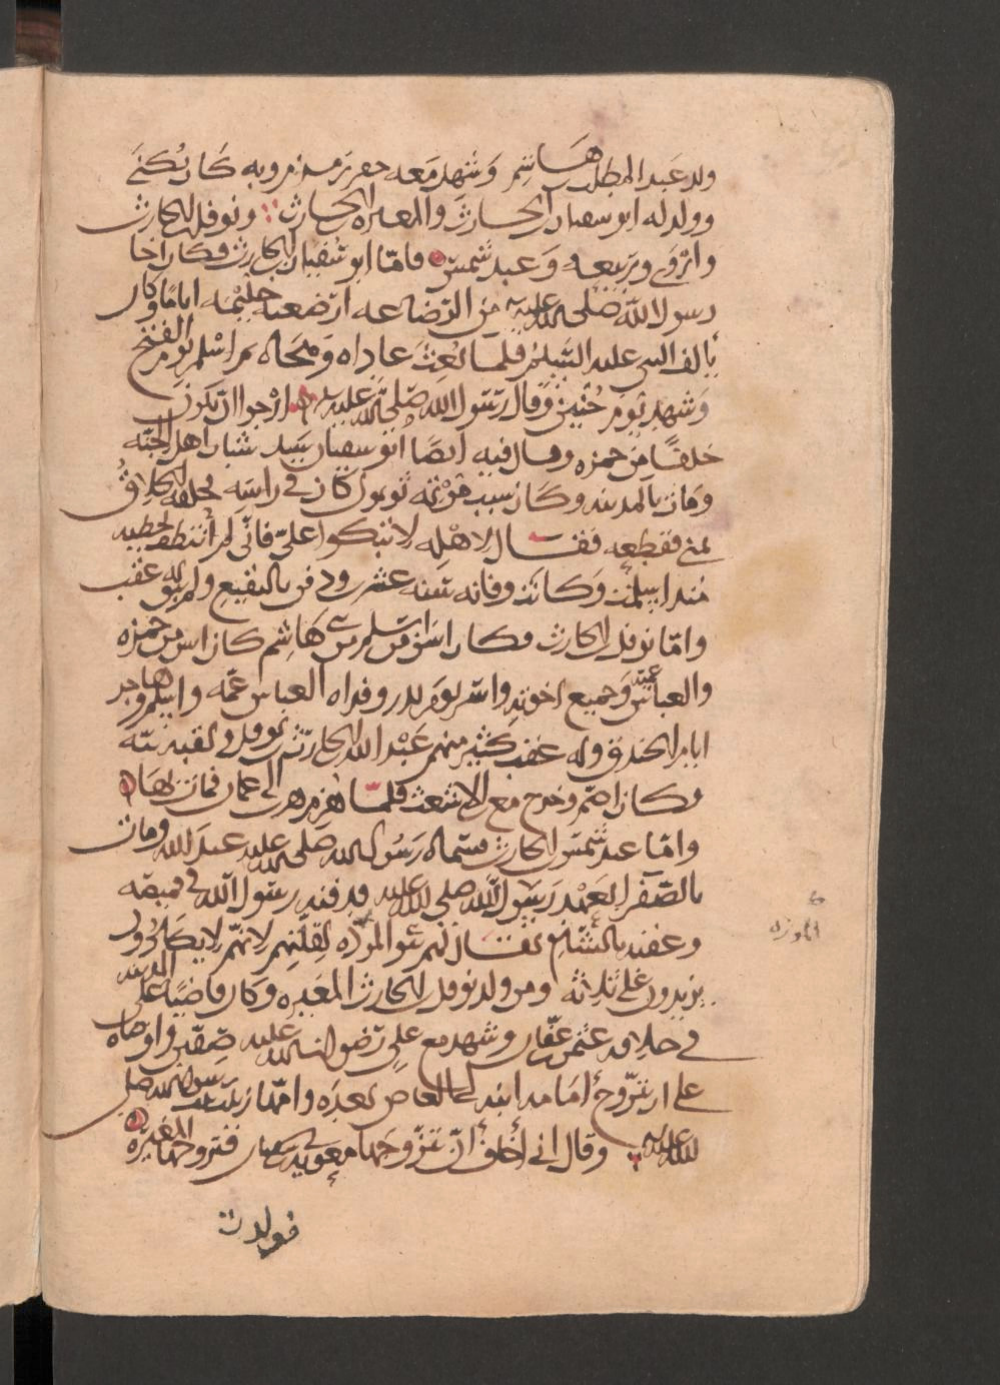 ولد عبد المطلب هاشم وشهد معه حفر زمزم وبه كان يكنى
وولد له ابو سفيان الحارث والمغيره الحارث ونوفل الحارث
واروى وربيعه وعبد شمس فامّا ابو سفيان الحارث فكان اخا
رسول الله صلى الله عليه من الرّضاعه ارضعته حليمه اياما وكان
يألف النبى عليه السّلم فلما بُعث عاداه وهجاه ثم اسلم يوم الفتح
وشهد يوم حُنين وقال رسول الله صلى الله عليه ارجوا ان تكون
خلفًا من حمزه وقال فيه ايضًا ابو سفيان سيد شباب اهل الجنّه
ومات بالمدينه وكان سبب موته ثولول كان في راسه فحلقه الحلاق
بمنى فقطعه فقال لاهله لا تبكوا علىّ فانّى لم أتنطف بخطيه
منذ اسلمت وكانت وفاته سنه عشرين ودفن بالبقيع ولم يبق له عقب
وامّا نوفل الحارث فكان اسنّ من اسلم من بنى هاشم كان اسن من حمزه
والعباس عمّيه وجميع اخوته واسر يوم بدر وفداه العباس عمّه واسلم وهاجر
ايام الخندق وله عقب كثير منهم عبد الله الحارث نوفل ولقبه ببّه
وكان اصمّ وخرج مع ابن الاشعث فلمّا هزم هرب الى عمان فمات بها
وامّا عبد شمس الحارث فسمّاه رسول الله صلى الله عليه عبد الله ومات
بالصّفرا بعهد رسول الله صلى الله عليه فدفنه رسول الله في قميصه
وعقبه بالشام يقال لهم بنو الموزه لقلّتهم لانّهم لا يكادون
يزيدون على ثلاثه ومن ولد نوفل الحارث المغيره وكان قاضيًا على المدينه
في خلافه عثمن عفّان وشهد مع على رضوان الله عليه صفّين واوصاه
على ان يتزوج أمامه ابنه ابى العاص بعده وامّها زينب بنت رسول الله صلى
الله عليه وقال انى أخاف أن تتزوجها معويه سفيان فتزوجها المغيره
الموزه
فولدت